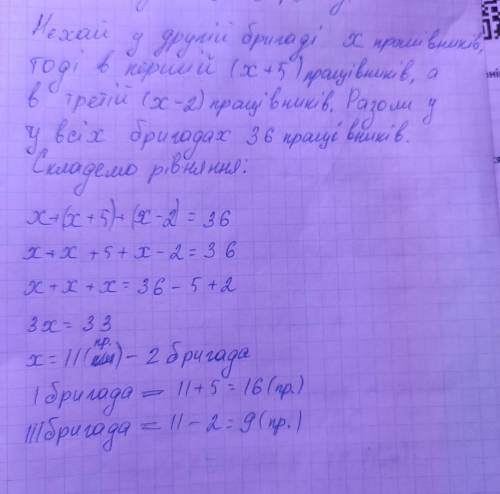 Нехай у другій бригаді x працівників,
тоді в першій (x+5) працівників, а
в третій (x-2) працівників. Разом у
у всіх бригадах 36 працівників.
Складемо рівняння:
x+(x+5)+(x-2)=36
x+x+5+x-2=36
x+x+x=36-5+2
3x=33
x=11(пр.)-2 бригада
I бригада = 11+5=16(пр.)
III бригада = 11-2=9(пр.)